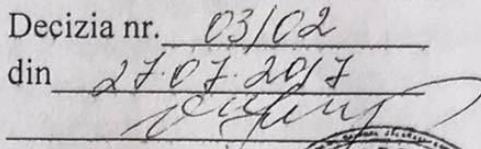 Decizia nr. 03/02
din 27.07.2017